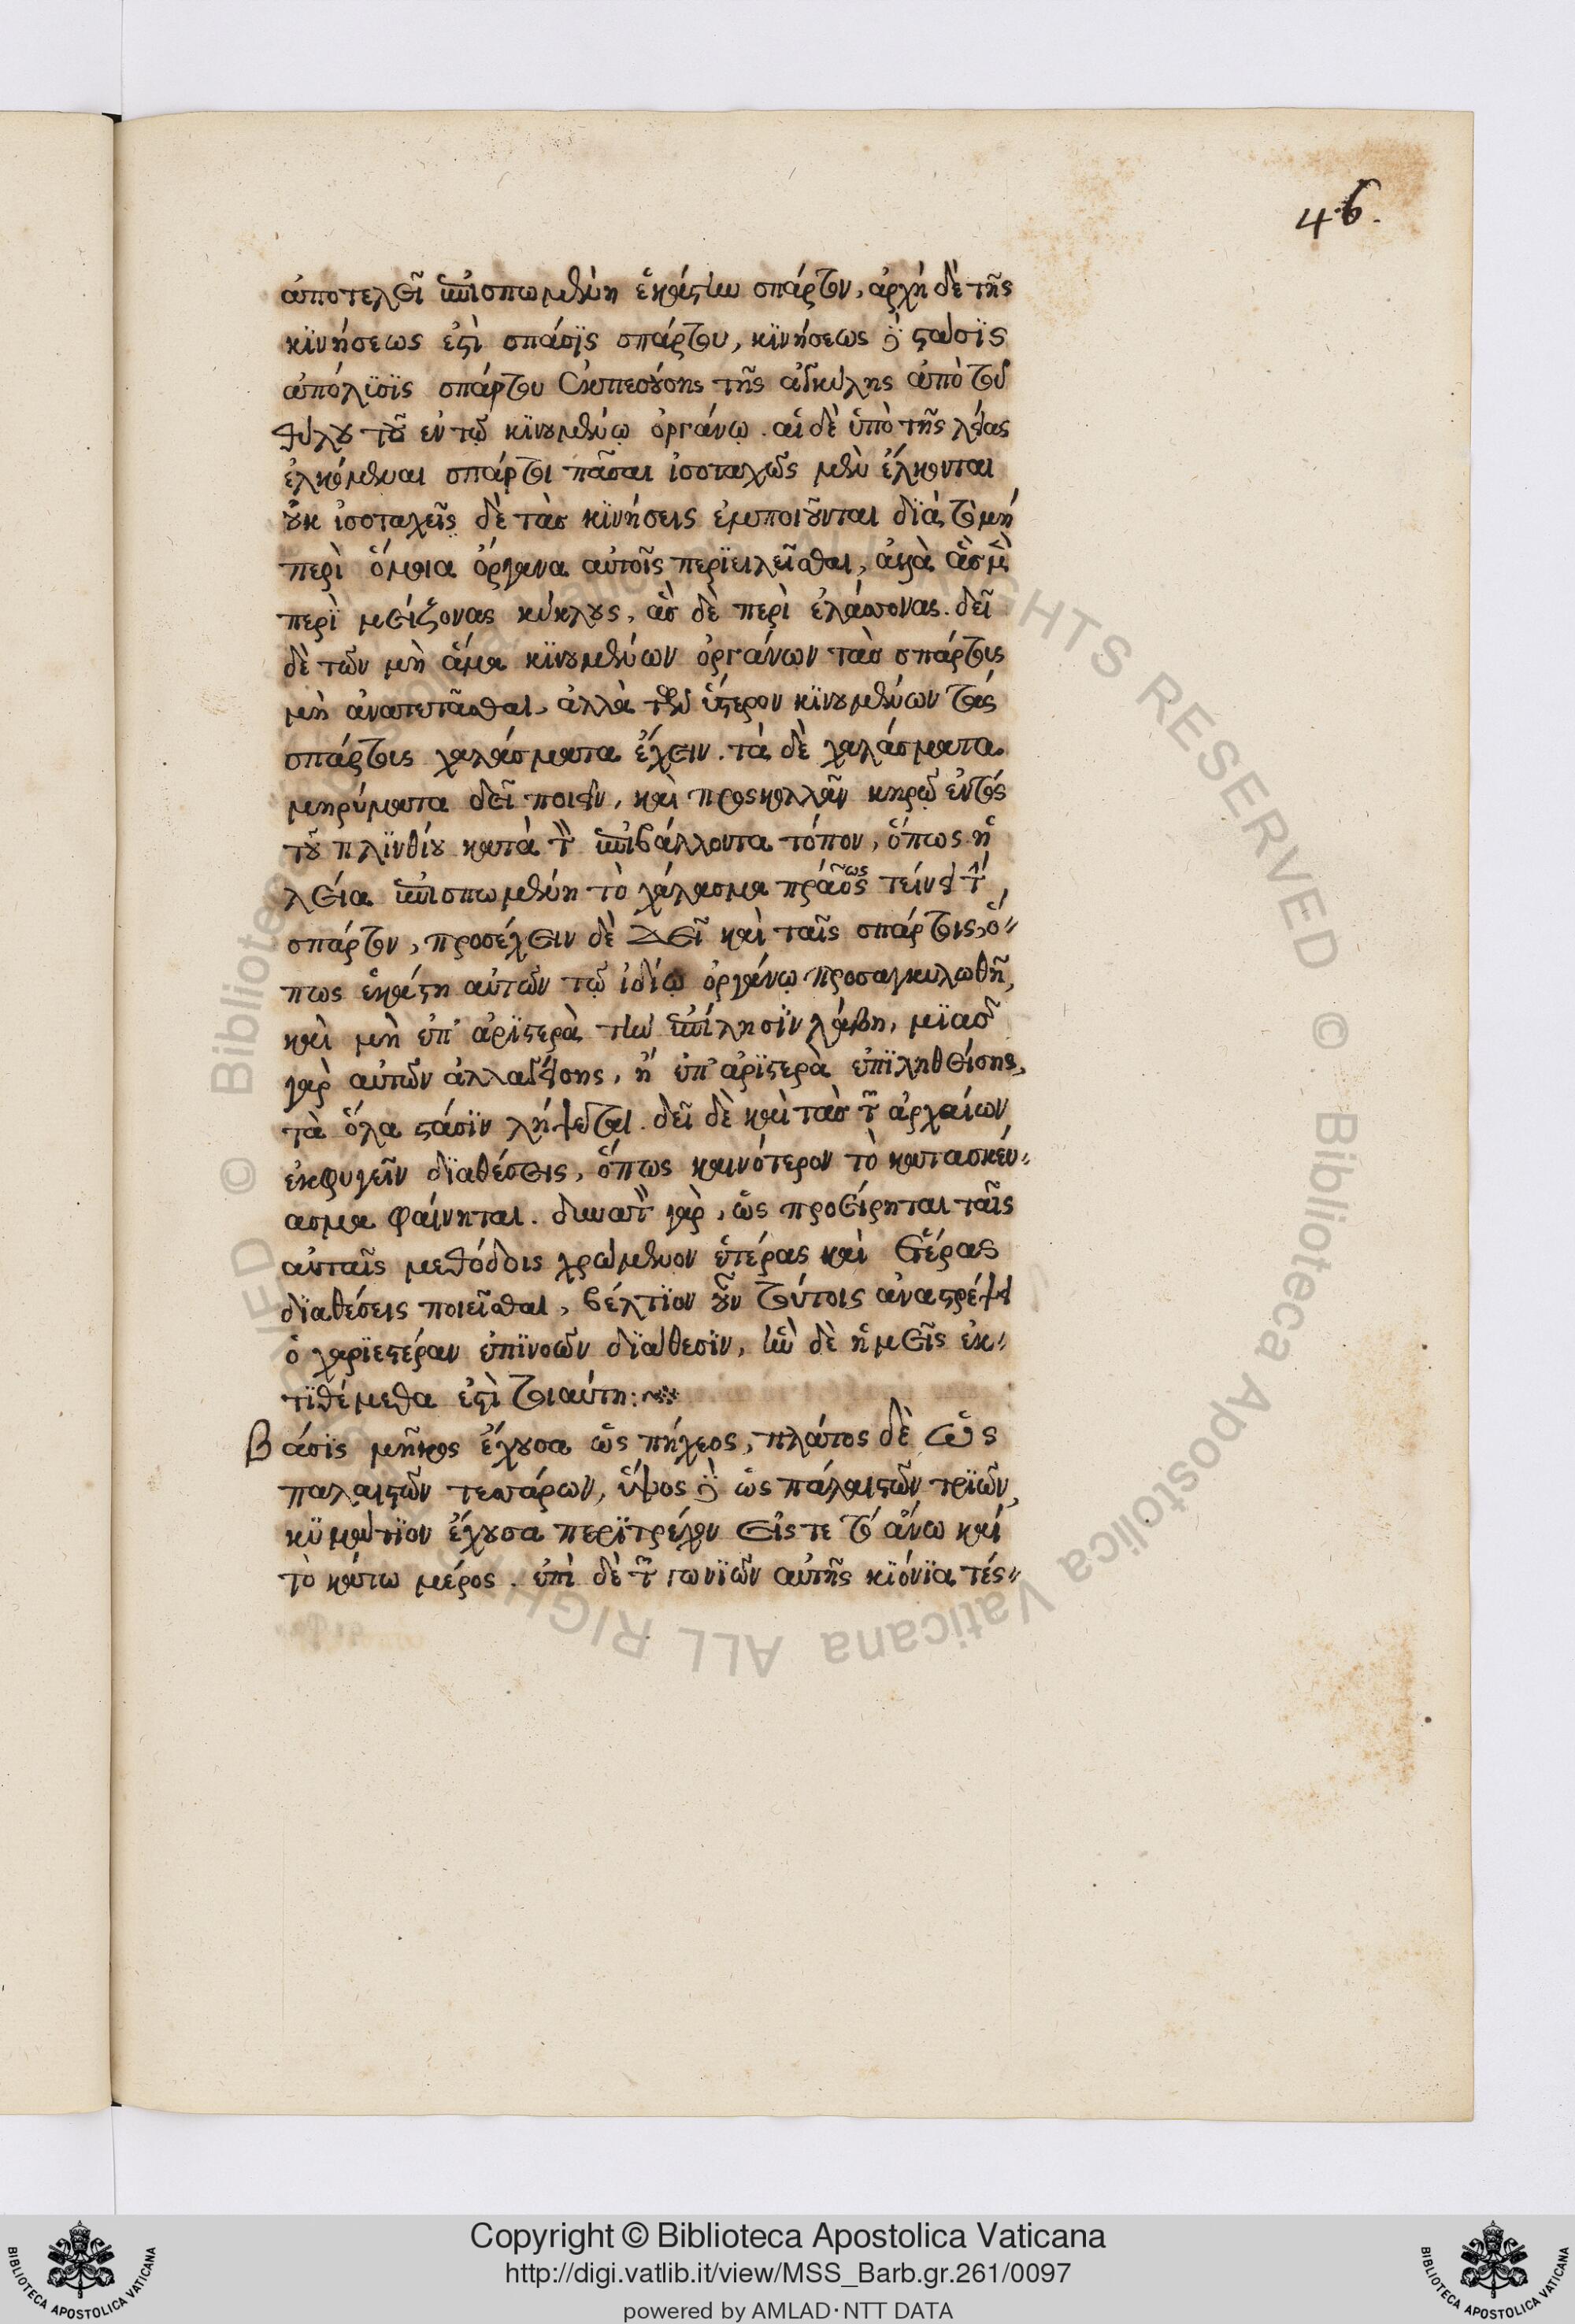 46.
ἀποτελεῖ ἐπισπωμένη ἑκάστην σπάρτον, ἀρχὴ δὲ τῆς
κϊνήσεως ἐστὶ σπάσϊς σπάρτου, κϊνήσεως δὲ στάσϊς
ἀπόλϋσϊς σπάρτου ἐκπεσούσης τῆς ἀγκύλης ἀπὸ τοῦ
τύλου τοῦ ἐν τῷ κϊνουμένῳ ὀργάνῳ. αἱ δὲ ὑπὸ τῆς λείας
ἑλκόμεναι σπάρτοι πᾶσαι ἰσοταχῶς μὲν ἕλκονται
οὐκ ἰσοταχεῖς δὲ τὰσ κϊνήσεις ἐμποιοῦνται δϊὰ τὸ μή
περὶ ὅμοια ὄργανα αὐτοῖς περϊειλεῖσθαι, ἀλλὰ ἃσ μὲν
περϊ μείζονας κύκλους, ἃσ δὲ περὶ ἐλάσσονας. δεῖ
δὲ τῶν μὴ ἅμα κϊνουμένων ὀργάνων τὰσ σπάρτους
μὴ ἀνατετᾶσθαι, ἀλλὰ τῶν ὕστερον κϊνουμένων τὰς
σπάρτους χαλάσματα ἔχειν. τὰ δὲ χαλάσματα
μηρύματα δεῖ ποιεῖν, καὶ προσκολλᾶν κηρῷ ἐντός
τοῦ πλϊνθίου κατὰ τὸν ἐπιβάλλοντα τόπον, ὅπως ἡ
λεία ἐπισπωμένη τὸ χάλασμα πράως τείνει τὴν
σπάρτον, προσέχειν δὲ δεῖ καὶ ταῖς σπάρτοις, ὅ-
πως ἑκάστη αὐτῶν τῷ ἰδίῳ ὀργάνῳ προσαγκυλωθῇ,
καὶ μὴ ἐπ' ἀρϊστερὰ τὴν ἐπίλησϊν λάβῃ, μϊᾶσ
γὰρ αὐτῶν ἀλλαγείσης, ἢ ἐπ' ἀρϊστερὰ ἐπϊληθείσης,
τὰ ὅλα στάσϊν λήψεται. δεῖ δὲ καὶ τὰσ τῶν ἀρχαίων
ἐκφυγεῖν δϊαθέσεις, ὅπως καινότερον τὸ κατασκεύ-
ασμα φαίνηται. δυνατὸν γὰρ, ὡς προείρηται ταῖς
αὐταῖς μεθόδοις χρώμενον ἑτέρας καὶ ἑτέρας
δϊαθέσεις ποιεῖσθαι, βέλτϊον οὖν τούτοις ἀναστρέψει
ὁ χαρϊεστέραν ἐπϊνοῶν δϊάθεσϊν, ἣν δὲ ἡμεῖς ἐκ-
τϊθέμεθα ἐστὶ τοιαύτη:
Βάσϊς μῆκος ἔχουσα ὡς πήχεος, πλάτος δὲ ὡς
παλαιστῶν τεσσάρων, ὕψος δὲ ὡς παλαιστῶν τρϊῶν,
κϋμάτϊον ἔχουσα περϊτρέχον εἰς τε τὸ ἄνω καὶ
τὸ κάτω μέρος. ἐπὶ δὲ τῶν γωνϊῶν αὐτῆς κϊόνϊα τέσ-
Copyright © Biblioteca Apostolica Vaticana
http://digi.vatlib.it/view/MSS_Barb.gr.261/0097
powered by AMLAD·NTT DATA
BIBLIOTECA APOSTOLICA VATICANA
BIBLIOTECA APOSTOLICA VATICANA
© Biblioteca Apostolica Vaticana ALL RIGHTS RESERVED